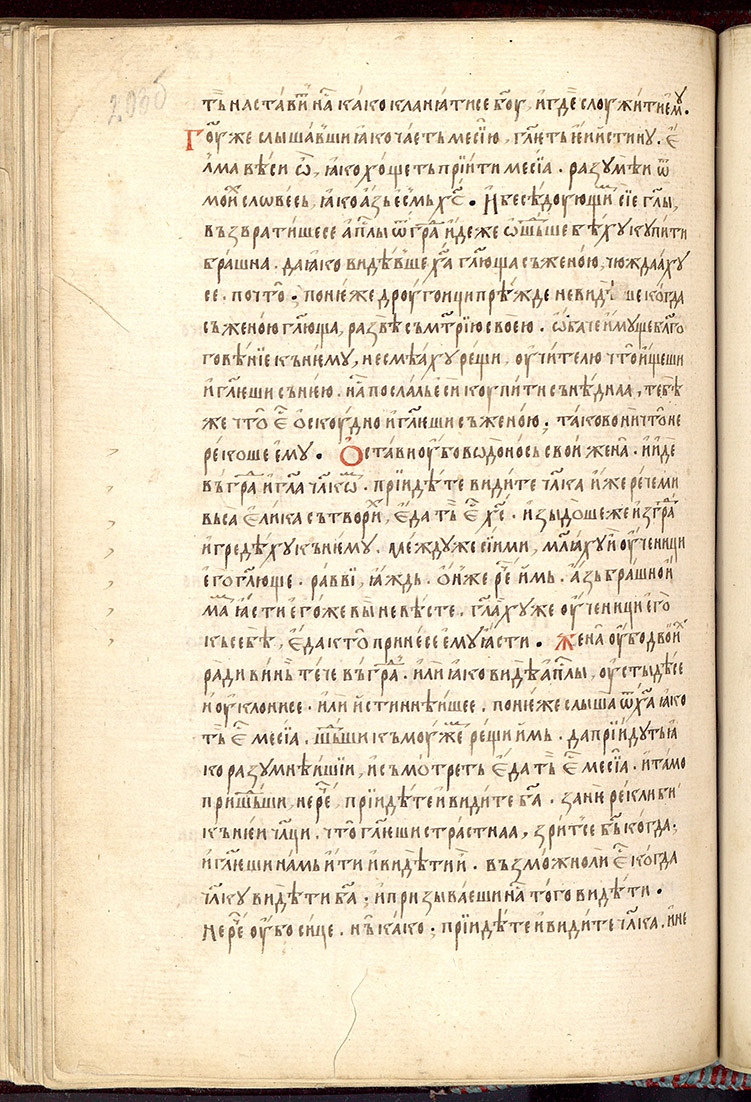 203б
ть наставⷮи на́ⷭ ка́ко кла́нꙗтисе бо҃у, и҆гдѐ слоужи́ти є҆мꙋ.
Го҃у же слы́шавши ꙗ҆ко ча́еть месі́ю, гл҃еть є҆и̑ и҆́стинꙋ. є҆-
лма вѣ́си ѡ҆́, ꙗ҆ко хо́щеть прїи́ти месі́а. разꙋмѣ́и ѿ
мои́ⷯ слѡве́сь, ꙗ҆ко а҆́зь є҆́смь хс҃. и҆ бесѣ́доующи́ⷨ сїе́ гл҃ы,
възврати́шесе а҆пⷭ҇лы ѿ гра́ⷣ и҆де́же ѿшⷣьше бѣ́хꙋ кꙋпи́ти
бра́шна. да ꙗ҆ко ви́дѣвⷲ҇ше х҃а гл҃юща съ жено́ю, чюжда́ахꙋ
се. почто̀; поне́же дроуго́ици прѣ́жде не ви́дѣше когда̀
съ жено́ю гл҃юща, ра́звѣ съ мт҃рїю свое́ю. ѻ҆ба́че и҆мꙋ́ще бл҃го
говѣ́нїе къ не́мꙋ, не смѣ́ахꙋ рещѝ, оу҆чи́телю что̀ и҆́щеши
и҆ гл҃еши съ не́ю. на́ⷭ посла́ль є҆сѝ коупи́ти сънѣ́днаа, тебѣ́
же что̀ є҆́ⷭ ѻ҆скоу́дно и҆ гл҃еши съ жено́ю; таково̀ ничто̀ не
реко́ше є҆мꙋ. Ѻ҆ста́ви оу҆́бо вѡдоно́сь сво́и жена̀. и҆ и҆́де
въ гра́ⷣ и҆ гл҃а чл҃кѡⷨ. прїидѣ́те ви́дите чл҃ка и҆́же рече́ ми
въса̀ є҆ли́ка сътвори́ⷯ, є҆да̀ ть̀ є҆́ⷭ хс҃. и҆зыдо́ше же и҆з гра́ⷣ
и҆ гредѣ́хꙋ къ не́мꙋ. ме́ждꙋ же сїи́ми, мл҃ꙗхꙋ и҆̀ оу҆ченицѝ
є҆го̀ гл҃юще. раввї̀, ꙗ҆́ждь. ѻ҆́нже ре́ⷱ и҆́мь. а҆́зь бра́шно и҆́-
маⷨ ꙗ҆́сти є҆го́же вы̀ не вѣ́сте. гл҃ахꙋ же оу҆ченицѝ є҆го̀
къ себѣ̀, є҆да̀ кто̀ прине́се є҆мꙋ̀ ꙗ҆́сти. Жена̀ оу҆́бо дво́иⷯ
ра́ди ви́нь те́че въ гра́ⷣ. и҆лѝ ꙗ҆ко ви́дѣ а҆пⷭ҇лы, оу҆сты́дѣсе
и҆ оу҆клони́се. и҆лѝ и҆́стиннѣишее, поне́же слы́ша ѿ х҃а ꙗ҆́ко
ть̀ є҆́ⷭ месі́а. шⷣьши къ моу́жеⷨ рещѝ и҆́мь. да прїи́дꙋть ꙗ҆-
ко разꙋмнѣ́ишїи, и҆ съмо́треть є҆да̀ ть̀ є҆́ⷭ месі́а. и҆ та́мо
пришⷣьши, не ре́ⷱ, прїидѣ́те и҆ ви́дите б҃а. зане́ ре́кли би
къ не́и чл҃ци. что̀ гл҃еши стра́стнаа, зри́тсе бь҃ когда̀;
и҆ гл҃еши на́мь и҆́ти и҆ ви́дѣти и҆̀. възмо́жно ли є҆́ⷭ когда̀
чл҃кꙋ ви́дѣти б҃а; и҆ призыва́еши на́ⷭ того̀ ви́дѣти.
Не ре́ⷱ оу҆́бо си́це. нь̀ ка́ко; прїидѣ́те и҆ ви́дите чл҃ка. и҆ не